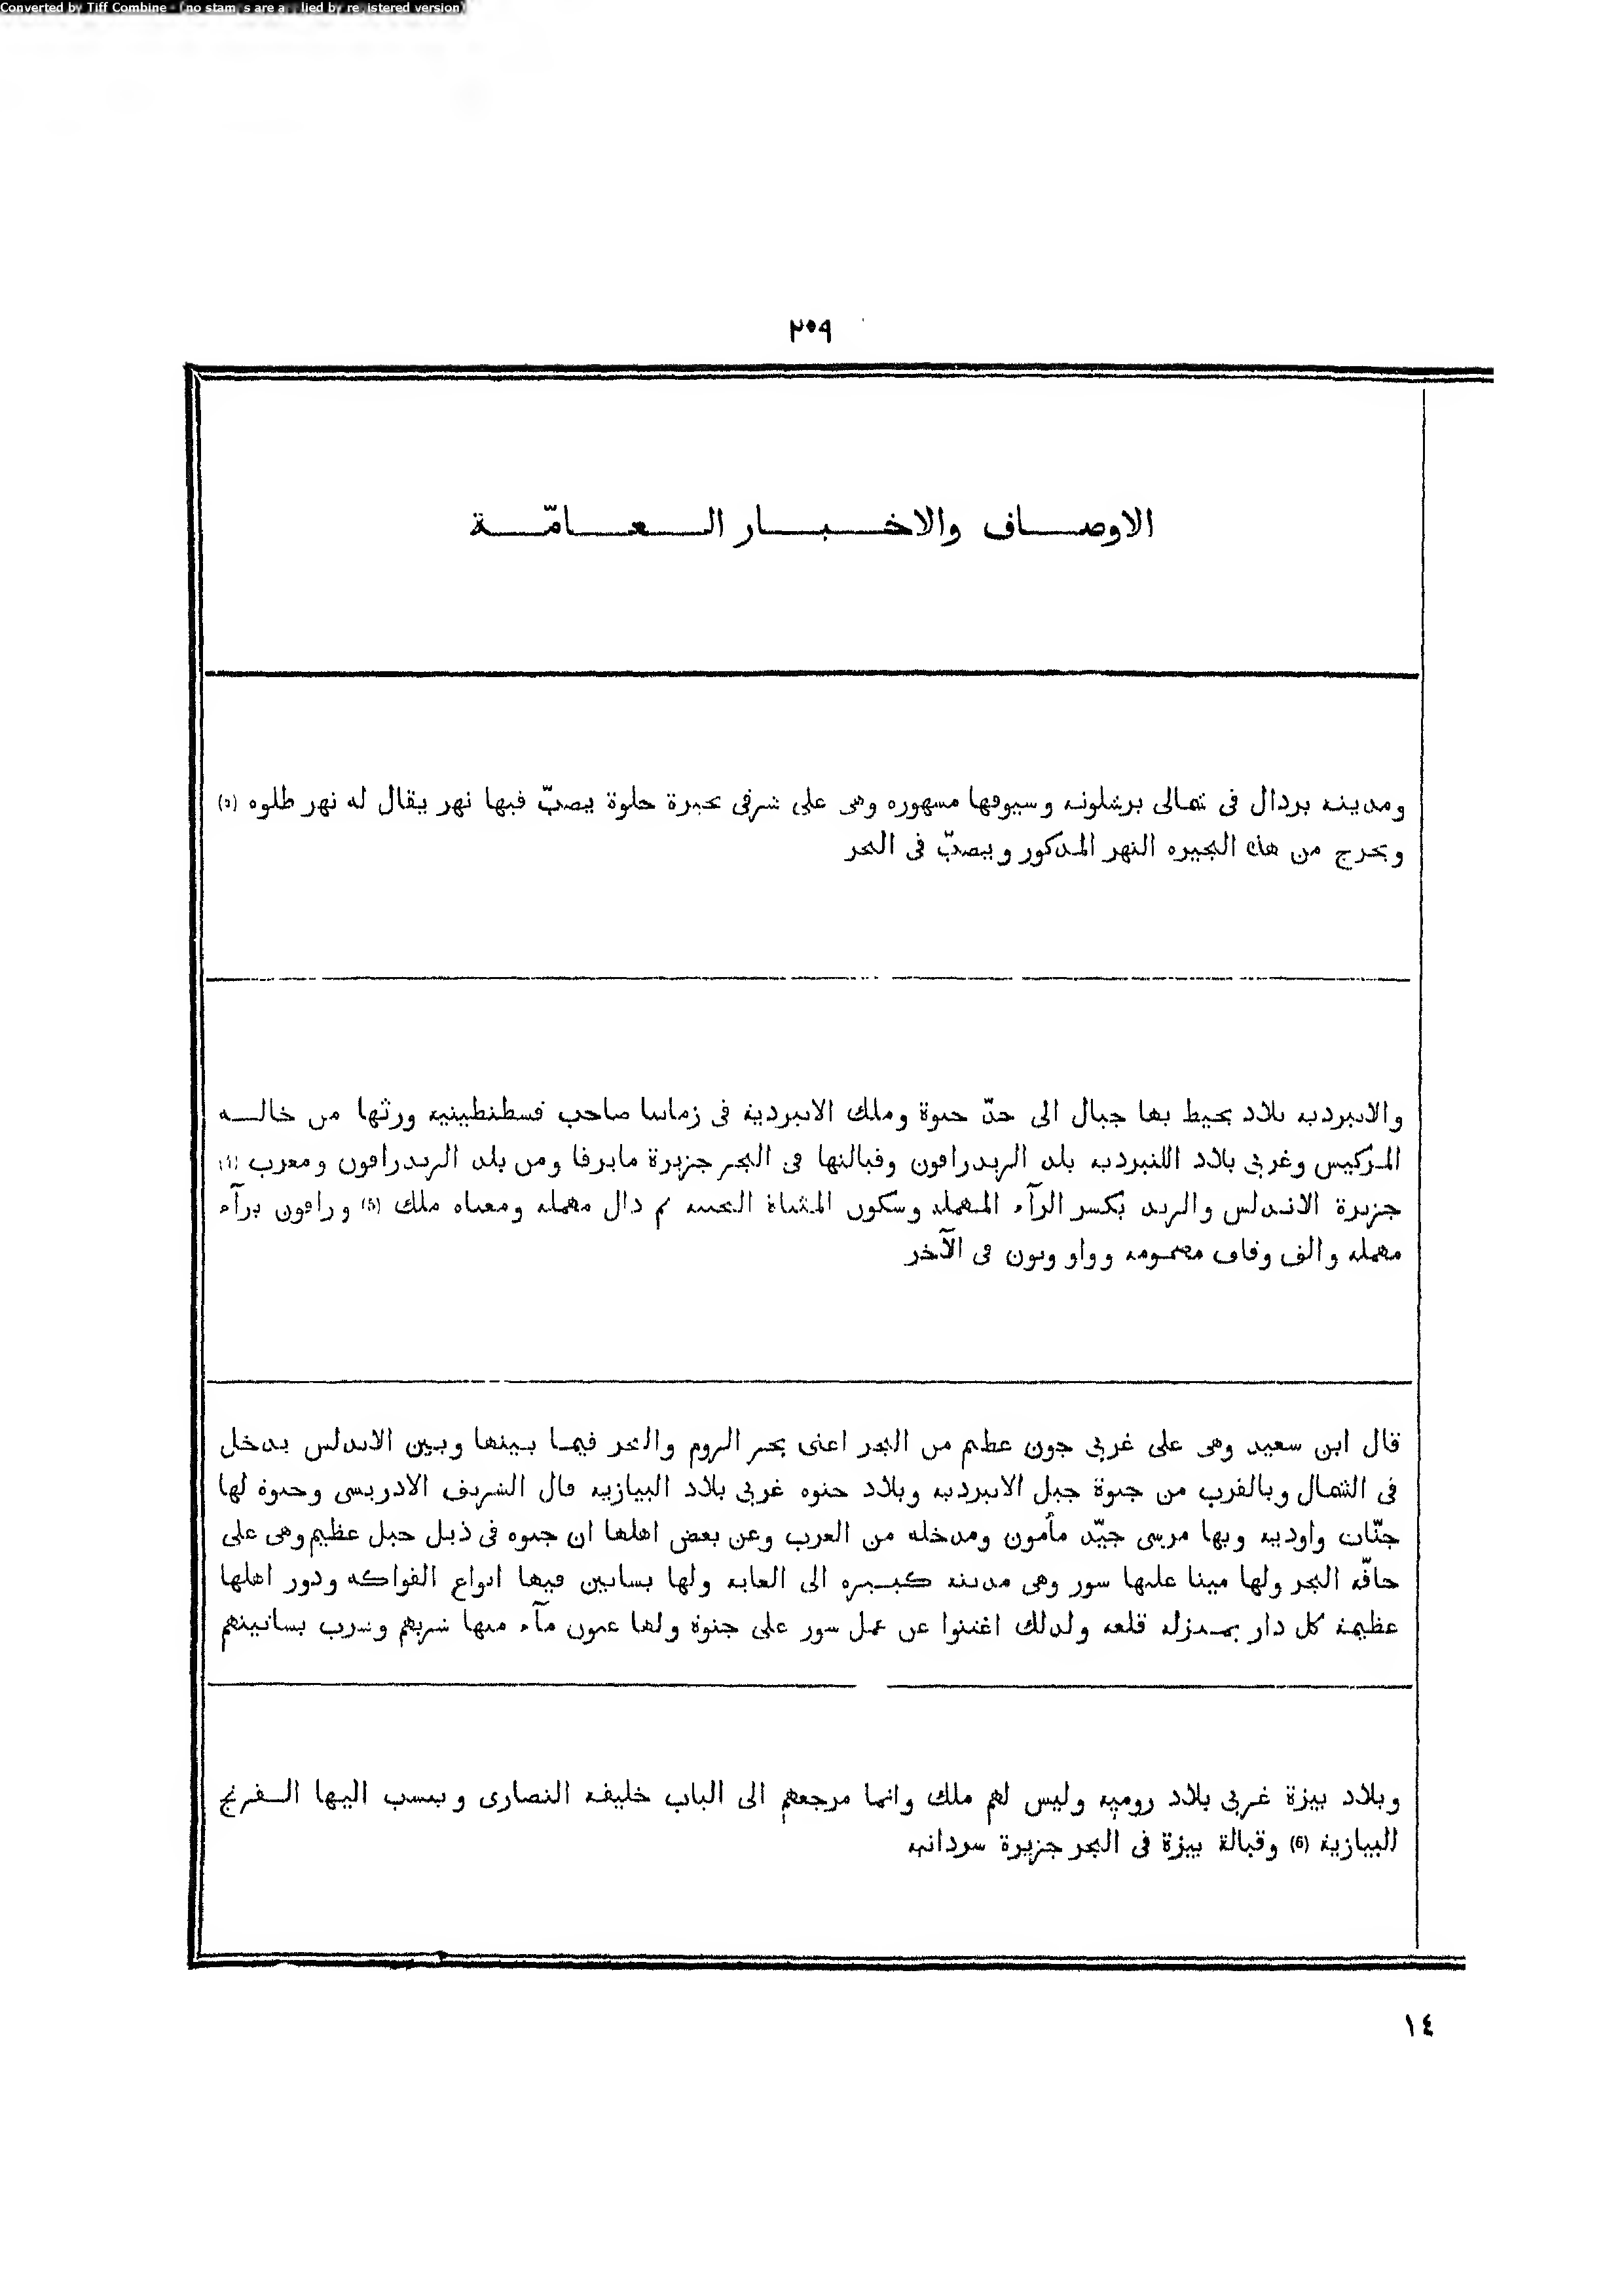 Converted by Tiff Combine - (no stamps are applied by registered version)
٢٠٩
الاوصاف والاخبار العامّة
ومدينة بردال فى شمالى برشلونة وسيوفها مشهورة وهى على شرقى بحيرة حلوة يصبّ فيها نهر يقال له نهر طلوه (٥)
ويخرج من هذه البحيرة النهر المذكور ويصبّ فى البحر
والانبردية بلاد يحيط بها جبال الى حدّ جنوة وملك الانبردية فى زماننا صاحب قسطنطينية ورثها من خاله
المركيس وغربى بلاد اللنبردية بلد الريدراقون وقبالتها فى البحر جزيرة مايرقا ومن بلد الريدراقون ومغرب (٤)
جزيرة الاندلس والريد بكسر الرآء المهملة وسكون المثناة التحتية ثم دال مهملة ومعناه ملك (5) وراقون برآء
مهملة والف وقاف مضمومة وواو ونون فى الآخر
قال ابن سعيد وهى على غربى جون عظيم من البحر اعنى بحر الروم والبحر فيما بينها وبين الاندلس يدخل
فى الشمال وبالقرب من جنوة جبل الانبردية وبلاد جنوه غربى بلاد البيازية قال الشريف الادريسى وجنوة لها
جنّات واودية وبها مرسى جيّد مأمون ومدخله من الغرب وعن بعض اهلها ان جنوه فى ذيل جبل عظيم وهى على
حافّة البحر ولها مينا عليها سور وهى مدينة كبيرة الى الغاية ولها بساتين فيها انواع الفواكه ودور اهلها
عظيمة كل دار بمنزلة قلعة ولذلك اغتنوا عن عمل سور على جنوة ولها عيون مآء منها شربهم وشرب بساتينهم
وبلاد بيزة غربى بلاد رومية وليس لهم ملك وانما مرجعهم الى الباب خليفة النصارى وينسب اليها الفرنج
البيازية (6) وقبالة بيزة فى البحر جزيرة سردانية
١٤